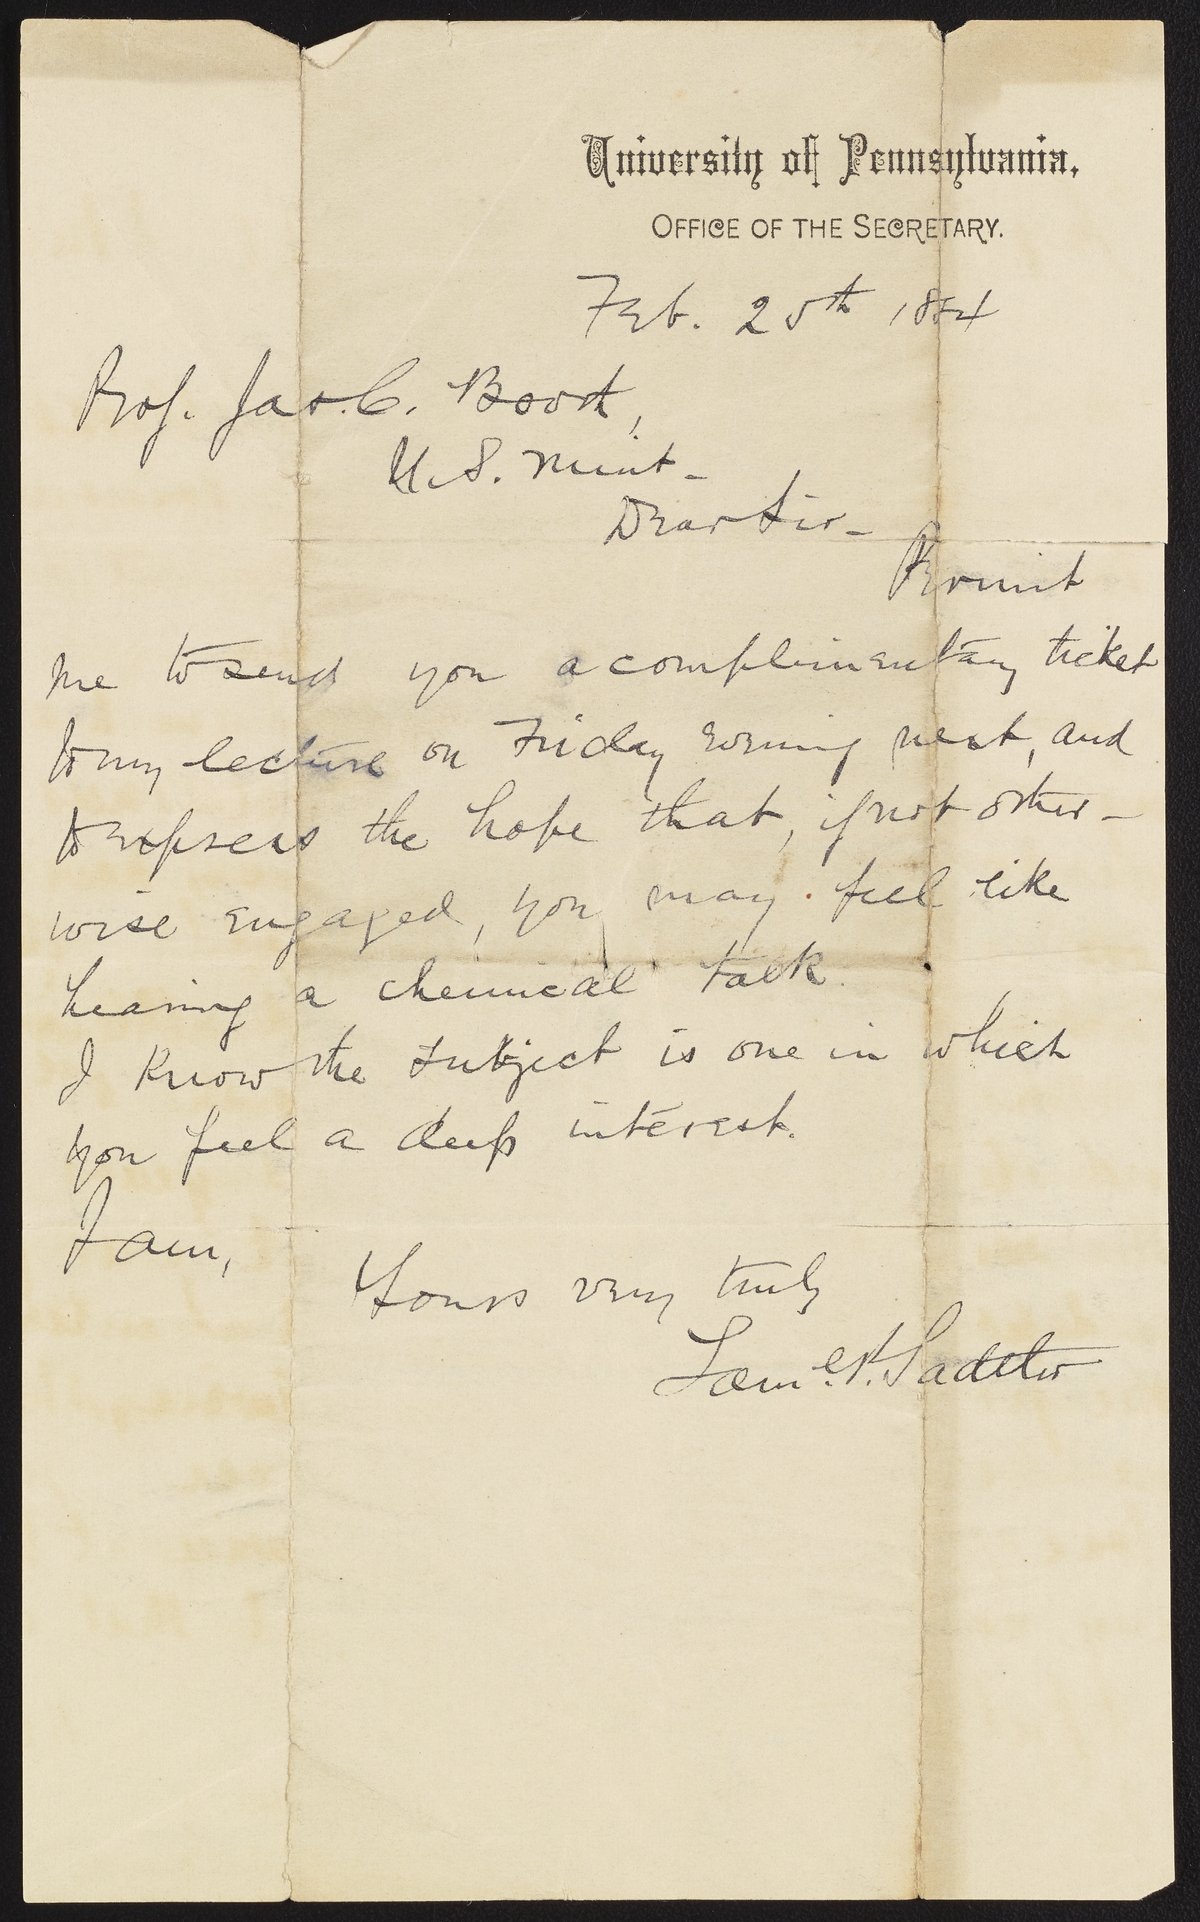 University of Pennsylvania,
OFFICE OF THE SECRETARY.
Feb. 25th 1884
Prof. Jas. C. Booth,
U.S. Mint –
Dear Sir –
Permit
me to send you a complimentary ticket
to my lecture on Friday evening next, and
to express the hope that, if not other –
wise engaged, you may feel like
hearing a chemical talk.
I know the subject is one in which
you feel a deep interest.
I am,
Yours very truly
Saml. P. Sadtler